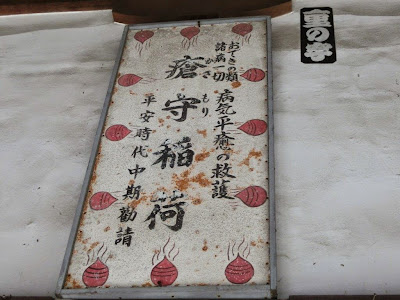 おできの類
諸病一切
病気平癒の救護
瘡守稲荷
かさ
もり
平安時代中期勧請